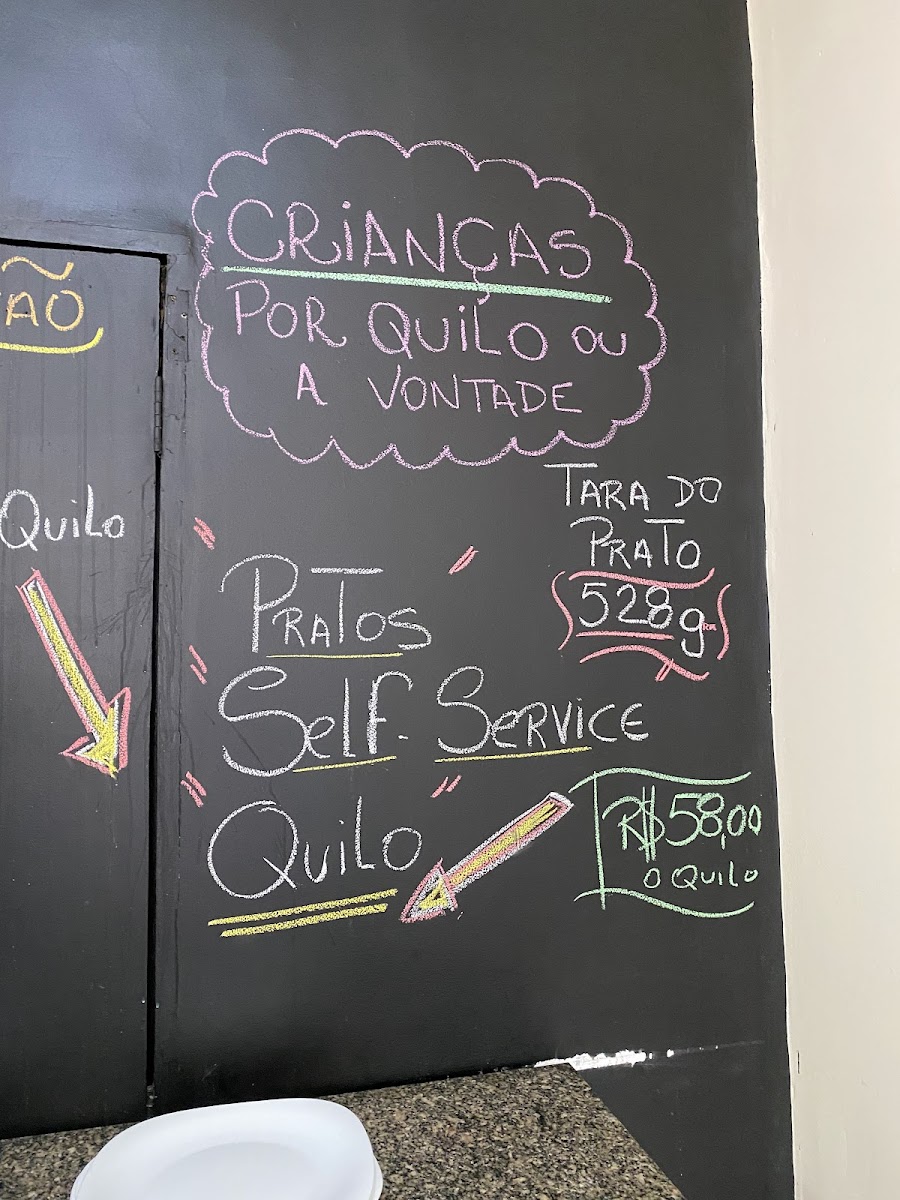 CRiANÇAS
POR QUiLO OU
A VONTADE
ÃO
QUiLO
TARA DO
PRATO
528g
PRATOS
SeLF SERVICE
QUiLO
R$58,00
O QUiLO